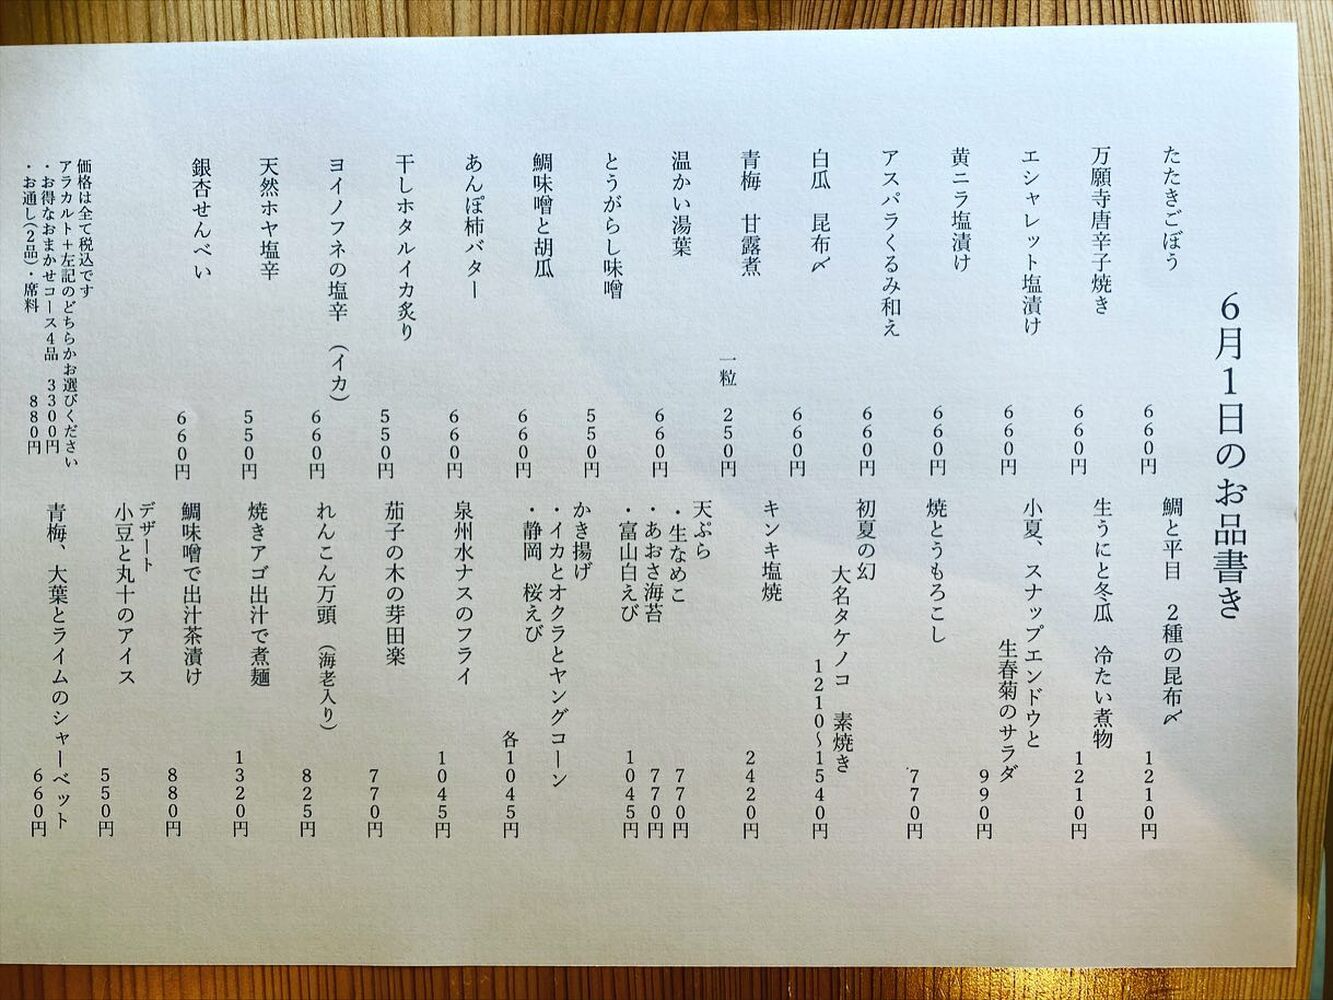 6月1日のお品書き
たたきごぼう
660円
万願寺唐辛子焼き
660円
エシャレット塩漬け
660円
黄ニラ塩漬け
660円
アスパラくるみ和え
660円
白瓜 昆布〆
660円
青梅 甘露煮
一粒 250円
温かい湯葉
660円
とうがらし味噌
550円
鯛味噌と胡瓜
660円
あんぽ柿バター
660円
干しホタルイカ炙り
550円
ヨイノフネの塩辛 (イカ)
660円
天然ホヤ塩辛
550円
銀杏せんべい
660円
価格は全て税込です
アラカルト+左記のどちらかお選びください
・お得なおまかせコース4品 3300円
・お通し(2品)・席料 880円
鯛と平目 2種の昆布〆
1210円
生うにと冬瓜 冷たい煮物
1210円
小夏、スナップエンドウと
生春菊のサラダ
990円
焼とうもろこし
770円
初夏の幻
大名タケノコ 素焼き
1210~1540円
キンキ塩焼
2420円
天ぷら
・生なめこ 770円
・あおさ海苔 770円
・富山白えび 1045円
かき揚げ
・イカとオクラとヤングコーン
・静岡 桜えび
各1045円
泉州水ナスのフライ
1045円
茄子の木の芽田楽
770円
れんこん万頭 (海老入り)
825円
焼きアゴ出汁で煮麺
1320円
鯛味噌で出汁茶漬け
880円
デザート
小豆と丸十のアイス
550円
青梅、大葉とライムのシャーベット
660円